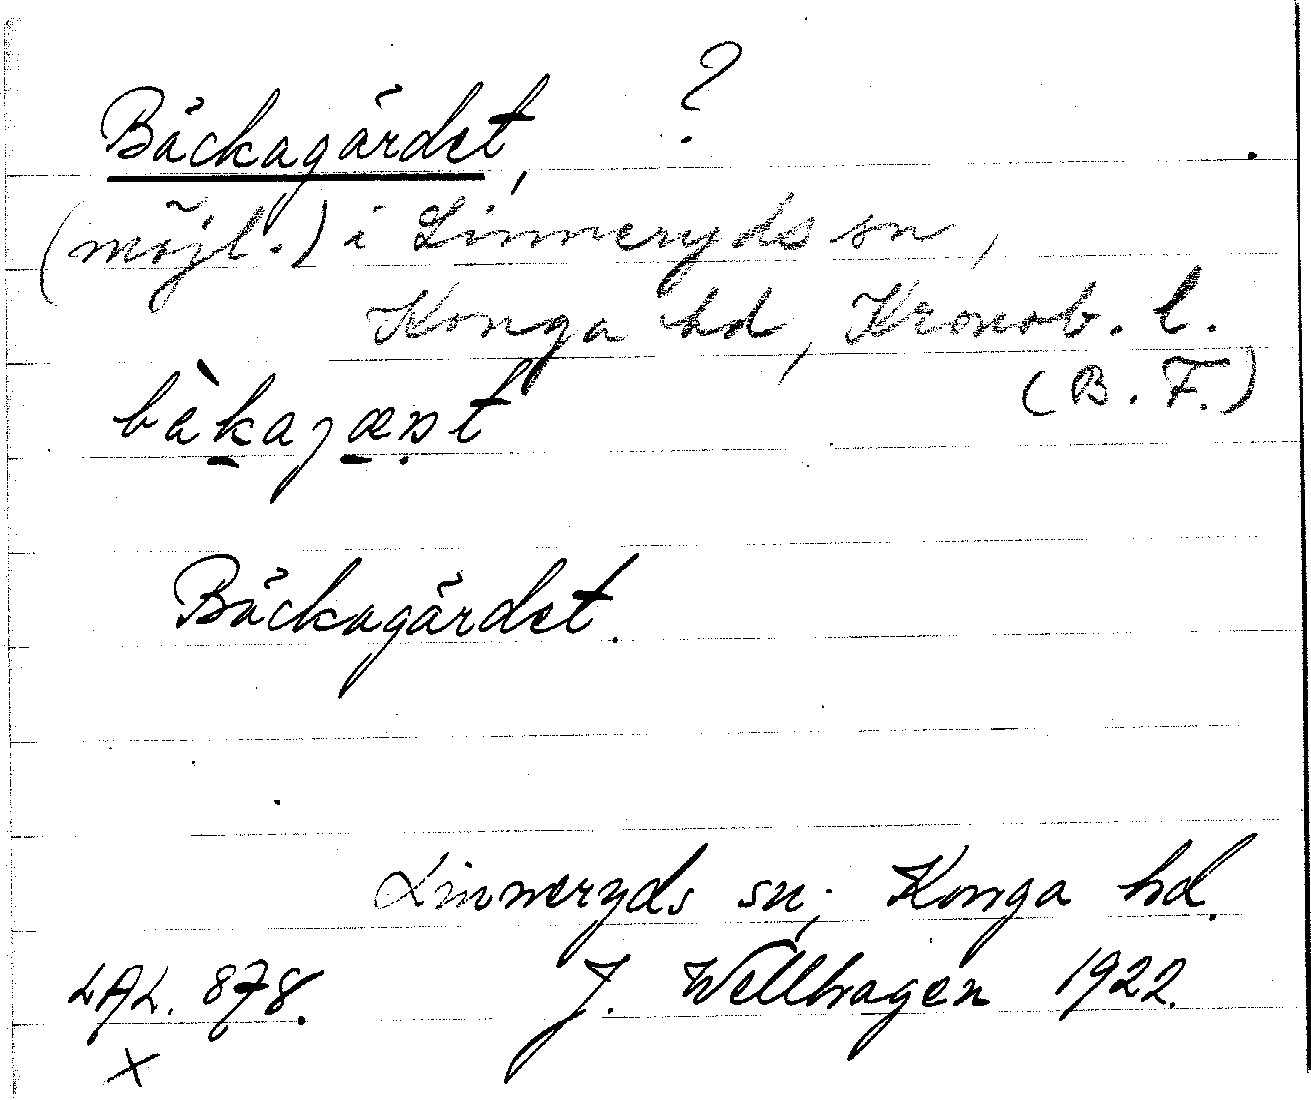 Bäckagärdet, ?
(möjl.) i Linneryds sn,
Konga hd, Kronob. l.
(B. F.)
Bäckagärdet.
Linneryds sn; Konga hd.
LAL. 878. J. Wellhagen 1922.
X